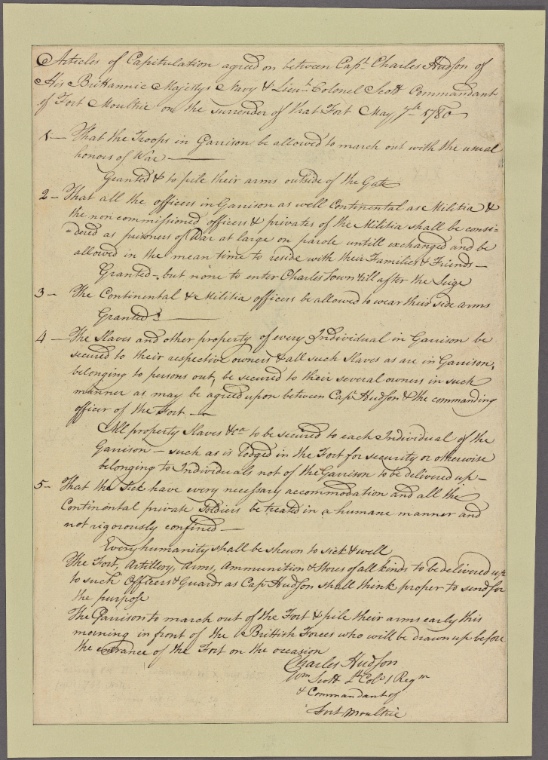 Articles of Capitulation agreed on between Capt. Charles Hudson of
His Brittannic Majestys Navy & Lieut. Colonel Scott Commandant
of Fort Moultrie on the Surrender of that Fort May 7th 1780
1 — That the Troops in Garrison be allowed to march out with the usual
honors of War —
Granted & to pile their arms outside of the Gate
2 — That all the officers in Garrison as well Continental as Militia &
the non commissioned officers & privates of the Militia shall be consi-
-dered as prisoners of War at large on parole untill exchanged and be
allowed in the mean time to reside with their Families & Friends —
Granted — but none to enter Charles Town till after the Seige
3 — The Continental & Militia officers be allowed to wear their side arms
Granted —
4 — The Slaves and other property of every Individual in Garrison be
secured to their respective owners & all such Slaves as are in Garrison,
belonging to persons out, be secured to their several owners in such
manner as may be agreed upon between Capn Hudson & the commanding
officer of the Fort —
All property Slaves &ca to be secured to each Individual of the
Garrison — such as is lodged in the Fort for security or otherwise
belonging to Individuals not of the Garrison to be delivered up —
5 — That the Sick have every necessary accommodation and all the
Continental private Soldiers be treated in a humane manner and
not rigorously confined —
Every humanity shall be shown to sick & well
The Fort, Artillery, Arms, Ammunition & Stores of all kinds to be delivered up
to such Officers & Guards as Capn Hudson shall think proper to send for
the purpose
The Garrison to march out of the Fort & pile their arms early this
morning in front of the British Forces who will be drawn up before
the entrance of the Fort on the occasion
Charles Hudson
Wm Scott Lt Col 1 Regm
& Commandant of
Fort Moultrie